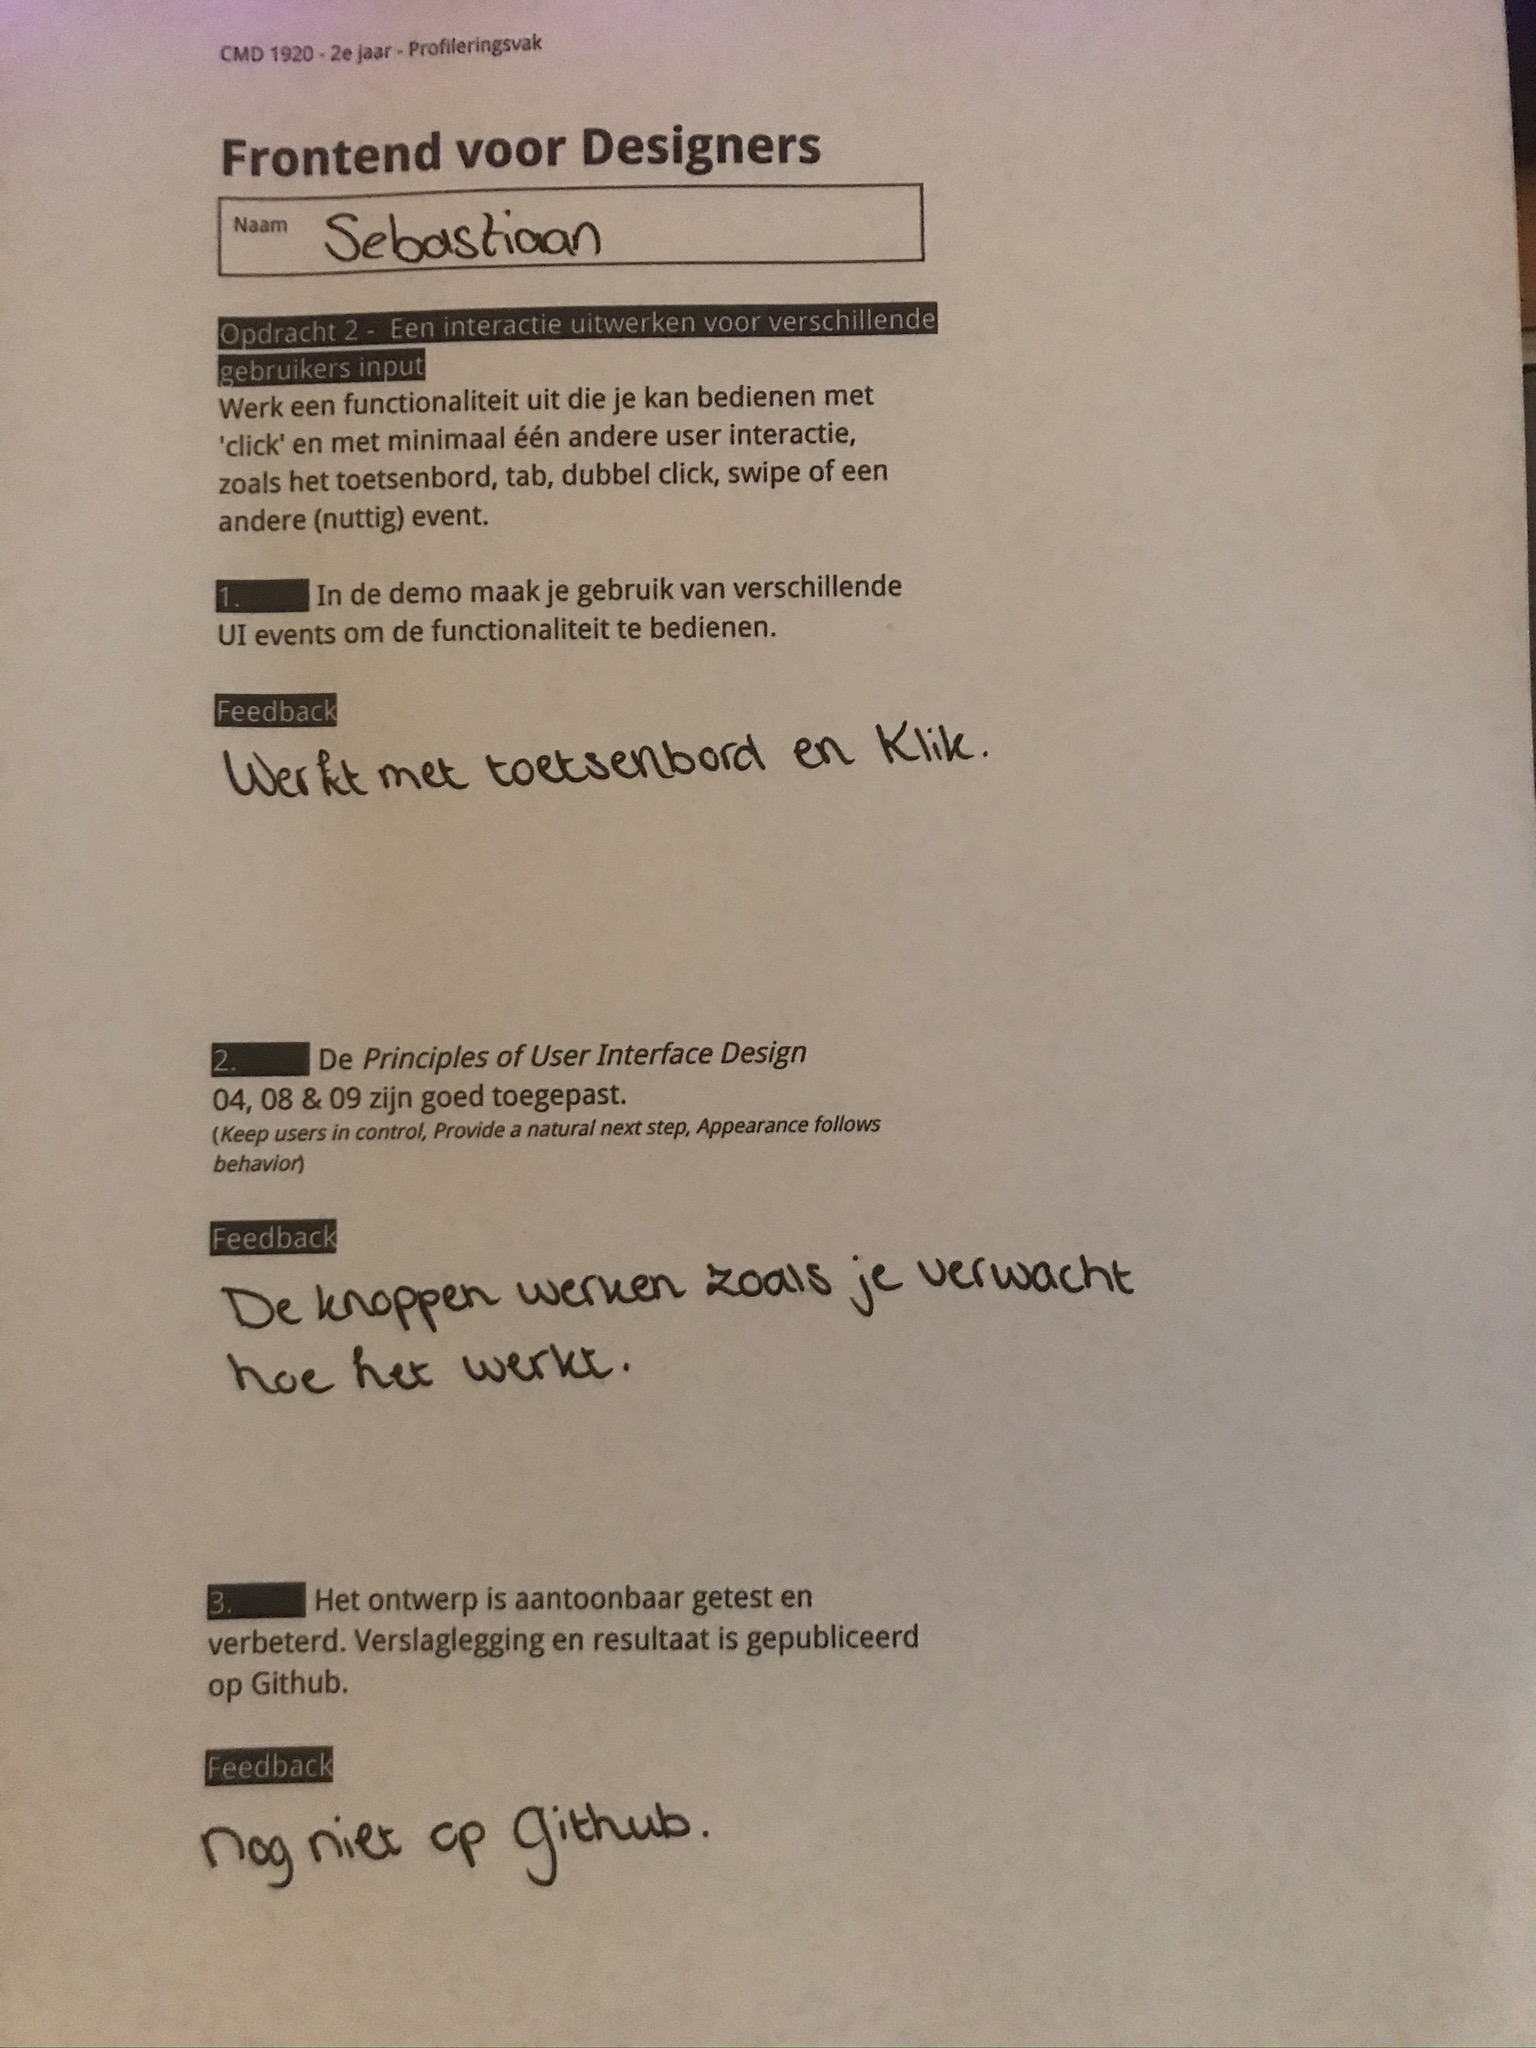 CMD 1920 - 2e jaar - Profileringsvak
Frontend voor Designers
Naam Sebastiaan
Opdracht 2 - Een interactie uitwerken voor verschillende
gebruikers input
Werk een functionaliteit uit die je kan bedienen met
'click' en met minimaal één andere user interactie,
zoals het toetsenbord, tab, dubbel click, swipe of een
andere (nuttig) event.
1. In de demo maak je gebruik van verschillende
UI events om de functionaliteit te bedienen.
Feedback
Werkt met toetsenbord en Klik.
2. De Principles of User Interface Design
04, 08 & 09 zijn goed toegepast.
(Keep users in control, Provide a natural next step, Appearance follows
behavior)
Feedback
De knoppen werken zoals je verwacht
hoe het werkt.
3. Het ontwerp is aantoonbaar getest en
verbeterd. Verslaglegging en resultaat is gepubliceerd
op Github.
Feedback
Nog niet op Github.